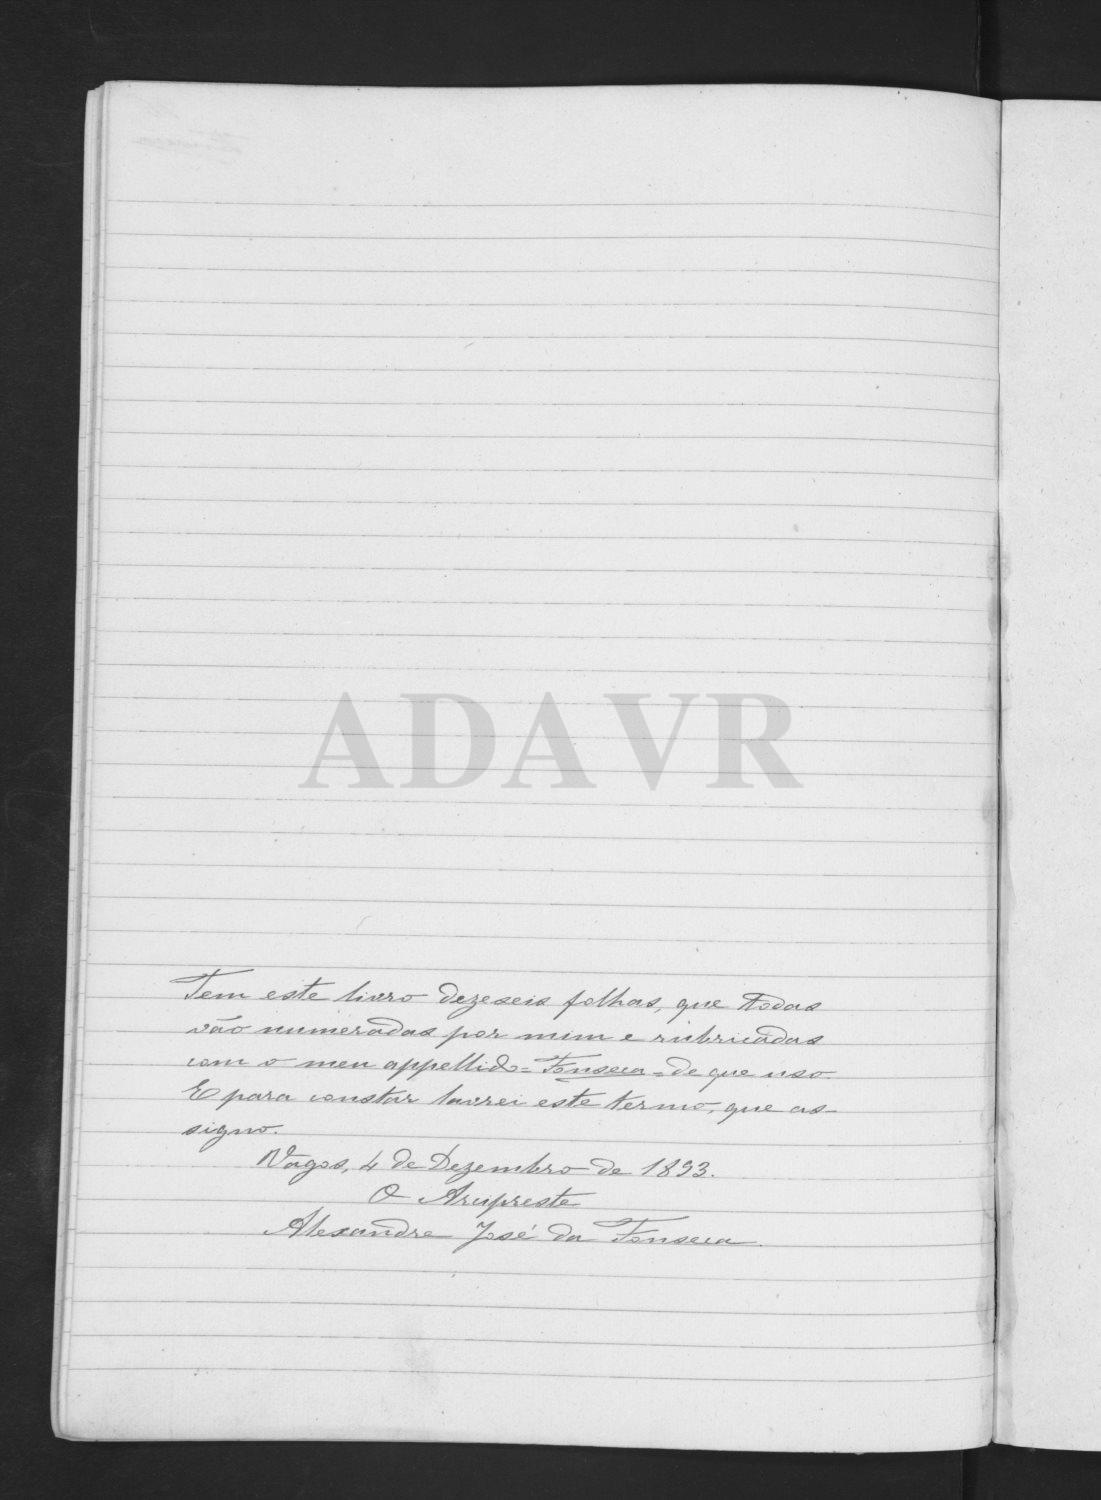 ADAVR
Tem este livro dezeseis folhas, que todas
vão numeradas por mim e rubricadas
com o meu appellido = Fonseca = de que uso.
E para constar lavrei este termo, que as-
signo.
Vagos, 4 de Dezembro de 1893.
O Arcipreste
Alexandre José da Fonseca